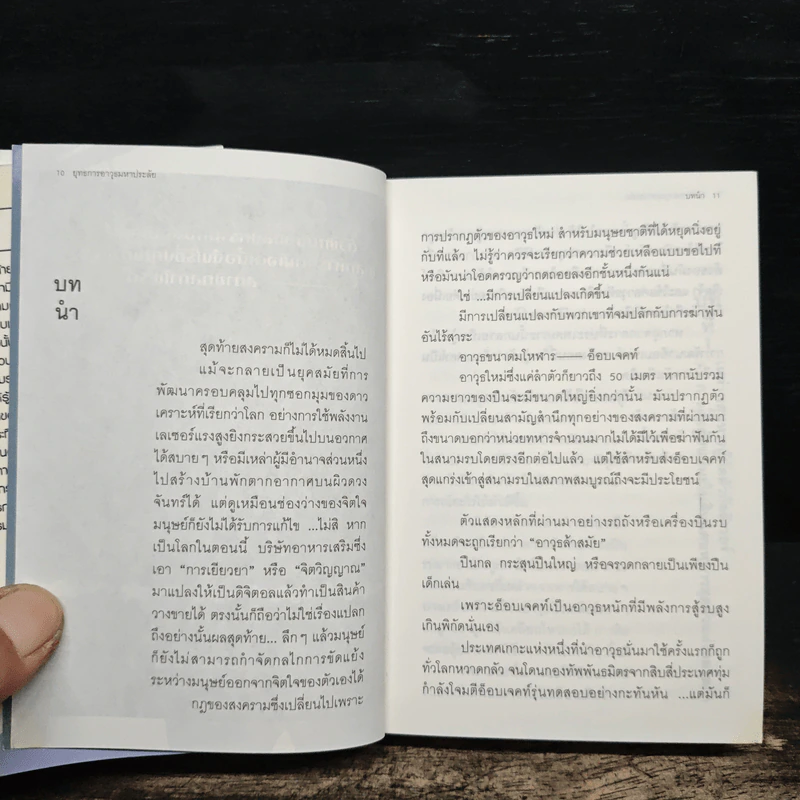 10 ยุทธการอาวุธมหาประลัย
บท
นำ
สุดท้ายสงครามก็ไม่ได้หมดสิ้นไป
แม้จะกลายเป็นยุคสมัยที่การ
พัฒนาครอบคลุมไปทุกซอกมุมของดาว
เคราะห์ที่เรียกว่าโลก อย่างการใช้พลังงาน
เลเซอร์แรงสูงยิงกระสวยขึ้นไปบนอวกาศ
ได้สบายๆ หรือมีเหล่าผู้มีอำนาจส่วนหนึ่ง
ไปสร้างบ้านพักตากอากาศบนผิวดวง
จันทร์ได้ แต่ดูเหมือนช่องว่างของจิตใจ
มนุษย์ก็ยังไม่ได้รับการแก้ไข ...ไม่สิ หาก
เป็นโลกในตอนนี้ บริษัทอาหารเสริมซึ่ง
เอา “การเยียวยา” หรือ “จิตวิญญาณ”
มาแปลงให้เป็นดิจิตอลแล้วทำเป็นสินค้า
วางขายได้ ตรงนั้นก็ถือว่าไม่ใช่เรื่องแปลก
ถึงอย่างนั้นผลสุดท้าย... ลึกๆ แล้วมนุษย์
ก็ยังไม่สามารถกำจัดกลไกการขัดแย้ง
ระหว่างมนุษย์ออกจากจิตใจของตัวเองได้
กฎของสงครามซึ่งเปลี่ยนไปเพราะ
บทนำ 11
การปรากฏตัวของอาวุธใหม่ สำหรับมนุษยชาติที่ได้หยุดนิ่งอยู่
กับที่แล้ว ไม่รู้ว่าควรจะเรียกว่าความช่วยเหลือแบบขอไปที
หรือมันน่าโอดครวญว่าถดถอยลงอีกชั้นหนึ่งกันแน่
ใช่ ...มีการเปลี่ยนแปลงเกิดขึ้น
มีการเปลี่ยนแปลงกับพวกเขาที่จมปลักกับการฆ่าฟัน
อันไร้สาระ
อาวุธขนาดมโหฬาร—— อ็อบเจคท์
อาวุธใหม่ซึ่งแค่ลำตัวก็ยาวถึง 50 เมตร หากนับรวม
ความยาวของปืนจะมีขนาดใหญ่ยิ่งกว่านั้น มันปรากฏตัว
พร้อมกับเปลี่ยนสามัญสำนึกทุกอย่างของสงครามที่ผ่านมา
ถึงขนาดบอกว่าหน่วยทหารจำนวนมากไม่ได้มีไว้เพื่อฆ่าฟันกัน
ในสนามรบโดยตรงอีกต่อไปแล้ว แต่ใช้สำหรับส่งอ็อบเจคท์
สุดแกร่งเข้าสู่สนามรบในสภาพสมบูรณ์ถึงจะมีประโยชน์
ตัวแสดงหลักที่ผ่านมาอย่างรถถังหรือเครื่องบินรบ
ทั้งหมดจะถูกเรียกว่า “อาวุธล้าสมัย”
ปืนกล กระสุนปืนใหญ่ หรือจรวดกลายเป็นเพียงปืน
เด็กเล่น
เพราะอ็อบเจคท์เป็นอาวุธหนักที่มีพลังการสู้รบสูง
เกินพิกัดนั่นเอง
ประเทศเกาะแห่งหนึ่งที่นำอาวุธนั่นมาใช้ครั้งแรกก็ถูก
ทั่วโลกหวาดกลัว จนโดนกองทัพพันธมิตรจากสิบสี่ประเทศทุ่ม
กำลังโจมตีอ็อบเจคท์รุ่นทดสอบอย่างกะทันหัน ...แต่มันก็